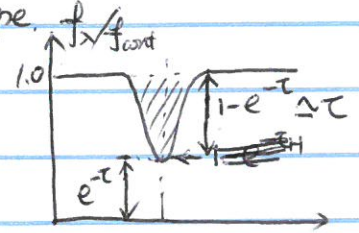 ne. fλ/fcont
1.0
1-e^-τ ≃ τ
e^-τ